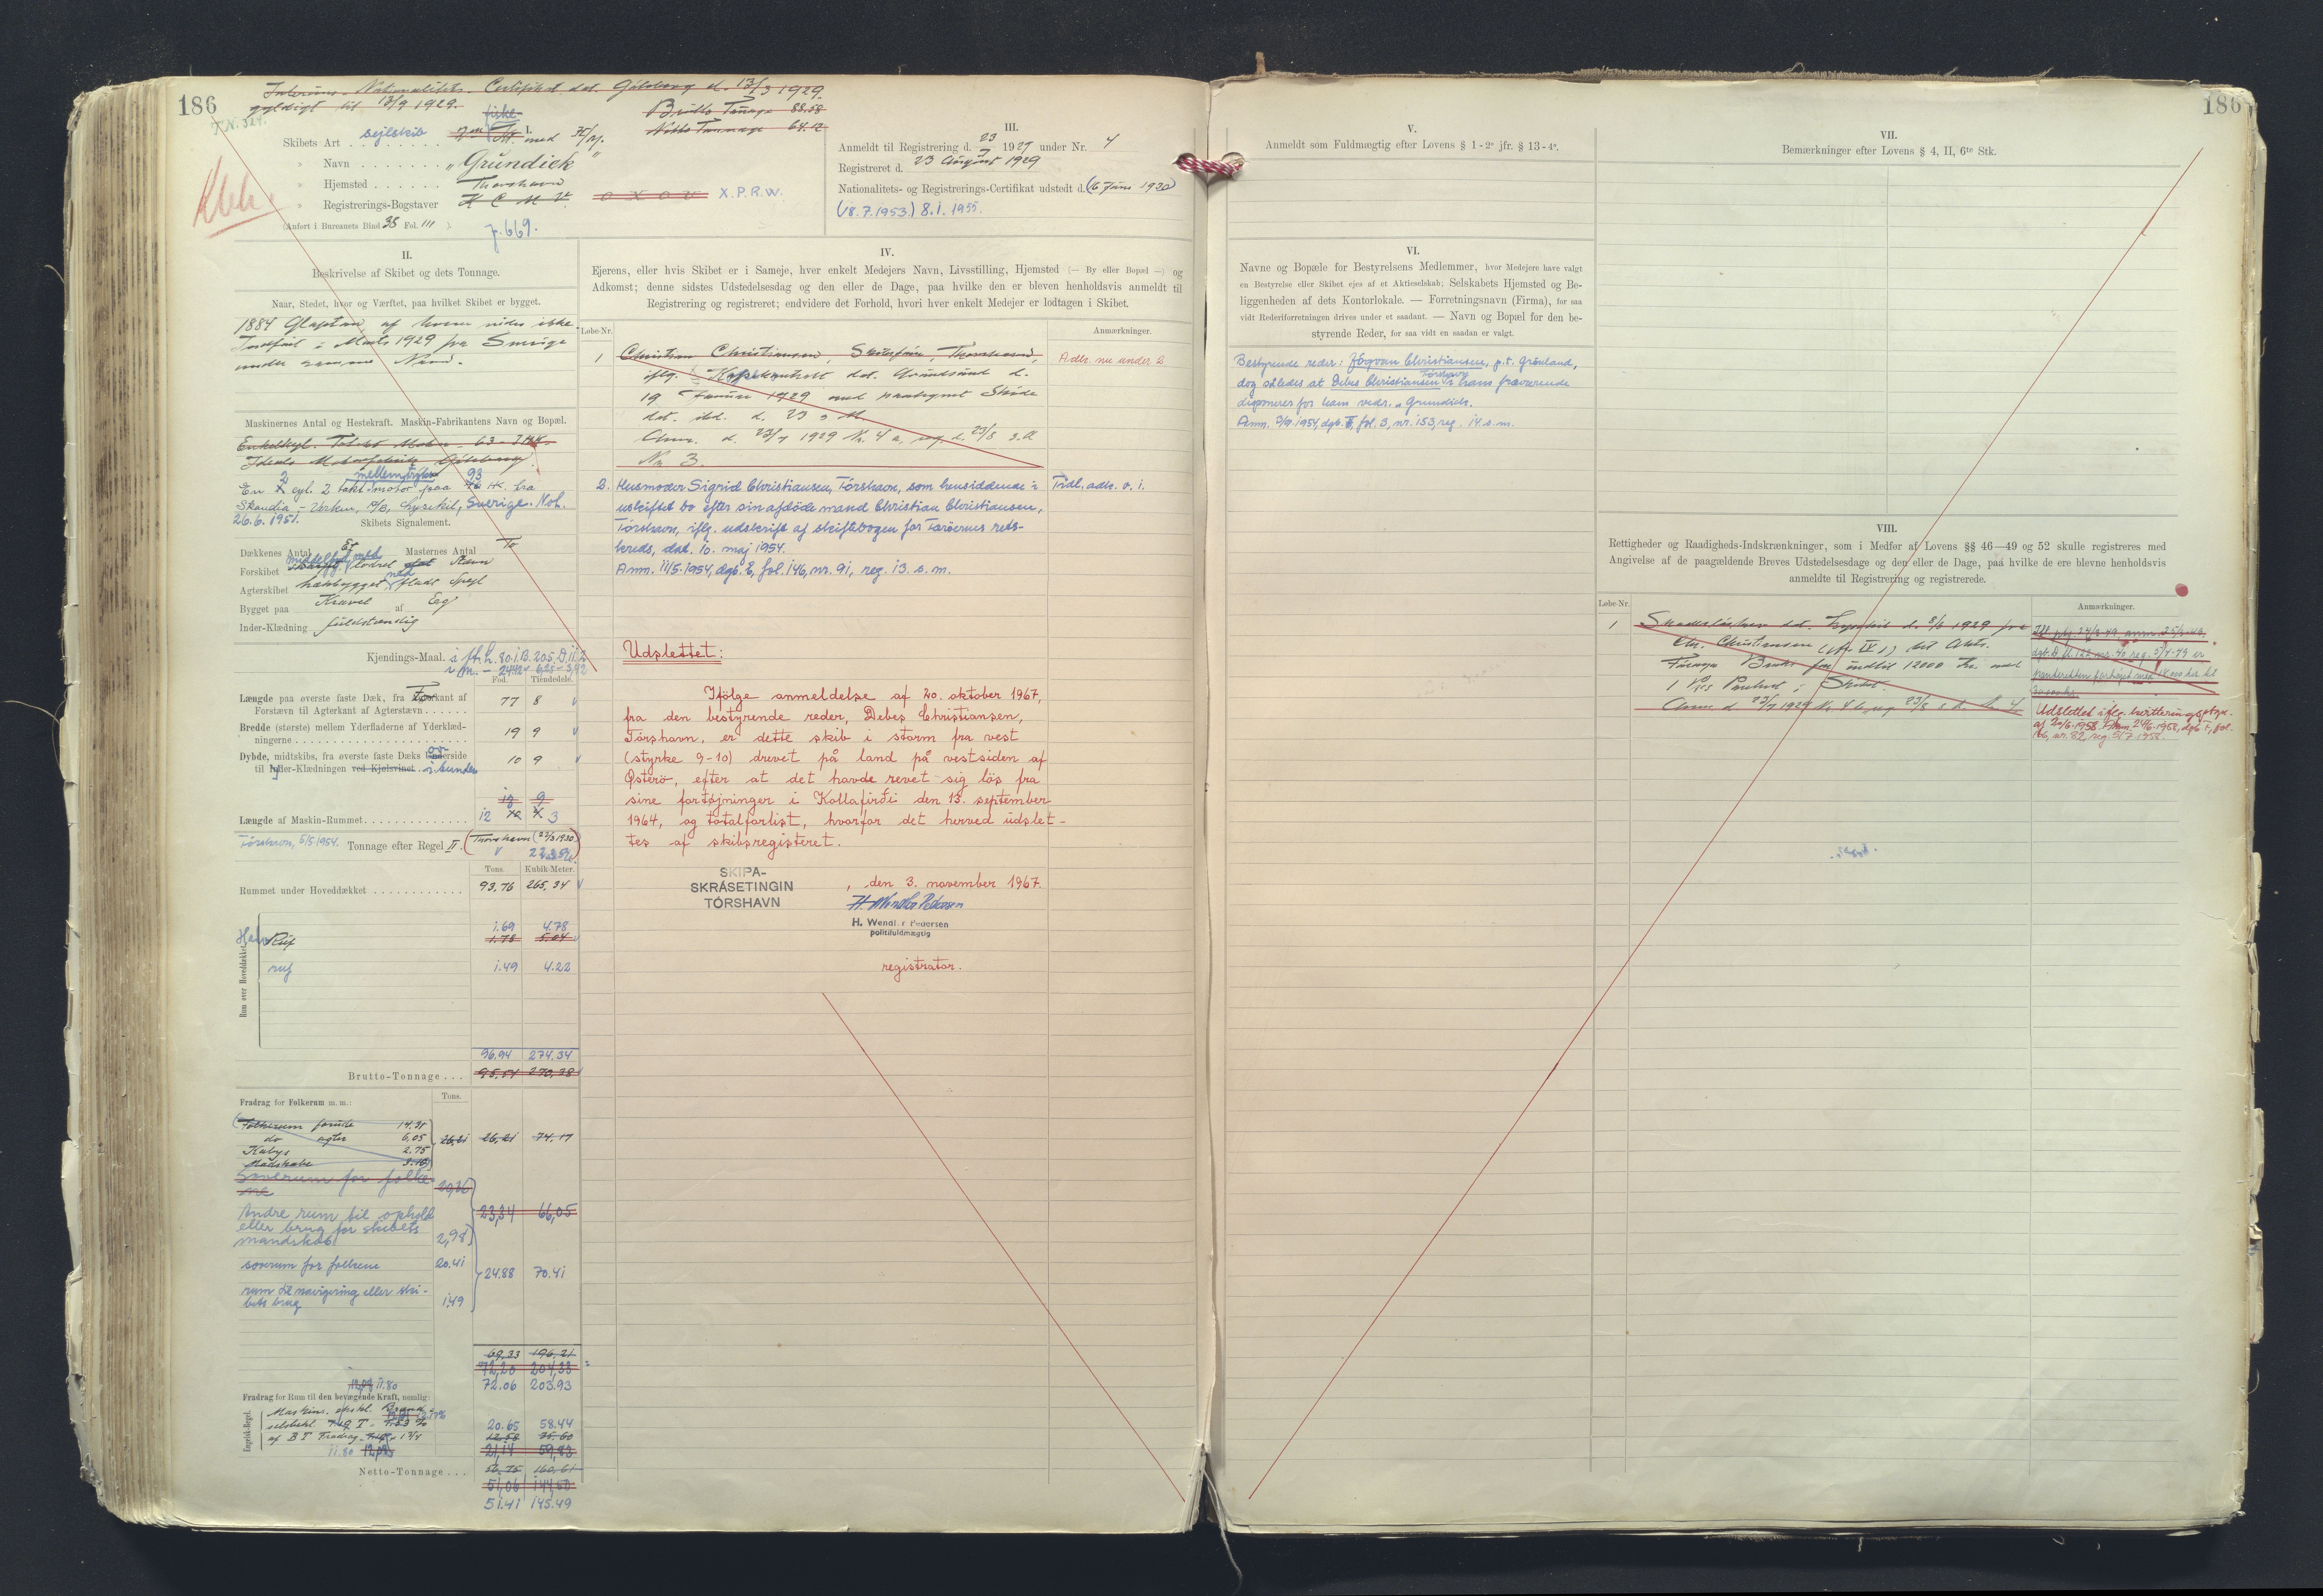 186
Interims-Nationalitets-Certifikat dat. Göteborg d. 13/3 1929.
gyldigt til 13/9 1929.
fiske-
Brutto Tonnage 88.58
Netto Tonnage 64.12
Skibets Art sejlskib med
" Navn "Grundick"
" Hjemsted Thorshavn
" Registrerings-Bogstaver X.P.R.W.
(Anført i Bureauets Bind 38 Fol. 111)
7.669.
III.
Anmeldt til Registrering d. 23/7 1929 under Nr. 4
Registreret d. 23 August 1929
Nationalitets- og Registrerings-Certifikat udstedt d. (16 Juni 1930)
(18.7.1953.) 8.1.1955.
II.
Beskrivelse af Skibet og dets Tonnage.
Naar, Stedet, hvor og Værftet, paa hvilket Skibet er bygget.
1884 af hvem vides ikke.
Indført i Marts 1929 fra Sverige
under samme Navn.
Maskinernes Antal og Hestekraft. Maskin-Fabrikantens Navn og Bopæl.
Enkeltcyl. Motor - 63 - IHK.
Göteborg
2 mellemtryks 93
En cyl. 2 takt motor paa HK. fra
Skandia-Verken, A/B, Lysekil, Sverige. Noh.
26.6.1951.
Skibets Signalement.
Dækkenes Antal Et Masternes Antal To
Forskibet middelfyld med lodret Stævn
Agterskibet hækbygget med fladt Spejl
Bygget paa Kravel af Eg
Inder-Klædning fuldstændig
Kjendings-Maal. i ft. L. 80.1 B. 20.5 D. 11.2
i m. - 24.42 - 6.25 - 3.42
Fod. Tiendedele.
Længde paa øverste faste Dæk, fra Forkant af
Forstævn til Agterkant af Agterstævn 77 8
Bredde (største) mellem Yderfladerne af Yderklæd-
ningerne 19 9
Dybde, midtskibs, fra øverste faste Dæks Underside
til Inder-Klædningen ved Kjølsvinet i bunden 10 9
Længde af Maskin-Rummet 12 3
Tórshavn, 5/5 1954. Tonnage efter Regel II. (Thorshavn 22/3 1930)
Tons. Kubik-Meter.
Rummet under Hoveddækket 93.76 265.34
Rum over Hoveddækket
1.69 4.78
Ruf 1.78 5.04
ruf 1.49 4.22
96.94 274.34
Brutto-Tonnage 95.54 270.38
Fradrag for Folkerum m. m.: Tons.
Folkerum forude 14.31
do agter 6,05 26,21 26,21 74.17
Kabys 2.75
Madskabe 3.10
Soverum for folke-
ne 20,36
Andre rum til ophold
eller brug for skibets
mandskab 2,98 23,34 66,05
soverum for folkene 20.41
24.88 70.41
rum til navigering eller ski-
bets brug 1.49
69,33 196,21
72,20 204,33
72.06 203.93
11.80
Fradrag for Rum til den bevægende Kraft, nemlig:
Engelsk-Regel.
20.65 58.44
21,14 59,83
11.80
Netto-Tonnage 56,75 160,61
51,06 144,50
51.41 145.49
IV.
Ejerens, eller hvis Skibet er i Sameje, hver enkelt Medejers Navn, Livsstilling, Hjemsted (— By eller Bopæl —) og
Adkomst; denne sidstes Udstedelsesdag og den eller de Dage, paa hvilke den er bleven henholdsvis anmeldt til
Registrering og registreret; endvidere det Forhold, hvori hver enkelt Medejer er lodtagen i Skibet.
Løbe-Nr. Anmærkninger.
1 Christian Christiansen, Thorshavn,
iflg. dat. Grundsund d.
19 Januar 1929 med paategnet Skøde
dat. ibd. d. 23 s M
Anm. d. 23/7 1929 Nr. 4 a, reg. d. 23/8 s. A
No 3.
Adk. nu under 2
2. Husmoder Sigrid Christiansen, Tórshavn, som hensiddende i
uskiftet bo efter sin afdöde mand Christian Christiansen,
Tórshavn, iflg. udskrift af skiftebogen for Færöernes rets-
kreds, dat. 10. maj 1954.
Anm. 11/5-1954, dgb. E, fol. 146, nr. 91, reg. 13. s. m.
Tidl. adk. v. 1.
Udslettet:
Ifölge anmeldelse af 20. oktober 1967,
fra den bestyrende reder, Debes Christiansen,
Tórshavn, er dette skib i storm fra vest
(styrke 9-10) drevet på land på vestsiden af
Østerö, efter at det havde revet sig lös fra
sine fortöjninger i Kollafirði den 13. september
1964, og totalforlist, hvorfor det herved udslet-
tes af skibsregisteret.
SKIPA-
SKRÁSETINGIN
TÓRSHAVN
, den 3. november 1967.
H. Wendler Pedersen
H. Wendler Pedersen
politifuldmægtig
registrator.
186
V.
Anmeldt som Fuldmægtig efter Lovens § 1-2° jfr. § 13-4°.
VI.
Navne og Bopæle for Bestyrelsens Medlemmer, hvor Medejere have valgt
en Bestyrelse eller Skibet ejes af et Aktieselskab; Selskabets Hjemsted og Be-
liggenheden af dets Kontorlokale. — Forretningsnavn (Firma), for saa
vidt Rederiforretningen drives under et saadant. — Navn og Bopæl for den be-
styrende Reder, for saa vidt en saadan er valgt.
Bestyrende reder: Jógvan Christiansen, p.t. Grönland,
dog således at Debes Christiansen Tórshavn i hans fraværende
disponerer for ham vedr. "Grundick.
VII.
Bemærkninger efter Lovens § 4, II, 6te Stk.
VIII.
Rettigheder og Raadigheds-Indskrænkninger, som i Medfør af Lovens §§ 46—49 og 52 skulle registreres med
Angivelse af de paagældende Breves Udstedelsesdage og den eller de Dage, paa hvilke de ere blevne henholdsvis
anmeldte til Registrering og registrerede.
Løbe-Nr. Anmærkninger.
1 Skadesløsbrev dat. Lysekil d. 8/6 1929 fra
Chr. Christiansen (Nr IV 1) til Akts.
Føroya Banki for indtil 12000 Kr. med
1 Pr. Panteret i Skibet.
Anm d 23/7 1929 Nr. 4 b, reg 23/8 s. A.
Udslettet iflg. kvitteringsptgn.
af 20/6-1958. Anm. 24/6-1958, dgb. F, fol.